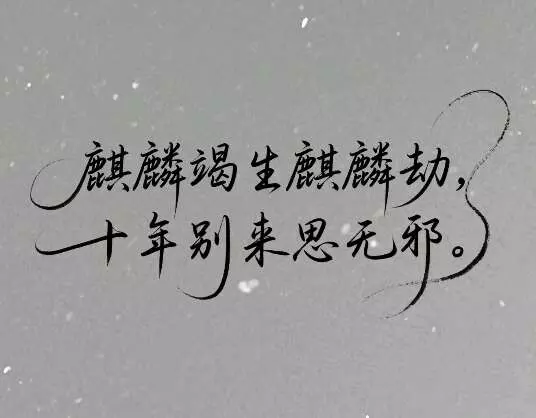 麒麟竭生麒麟劫，
十年别来思无邪。